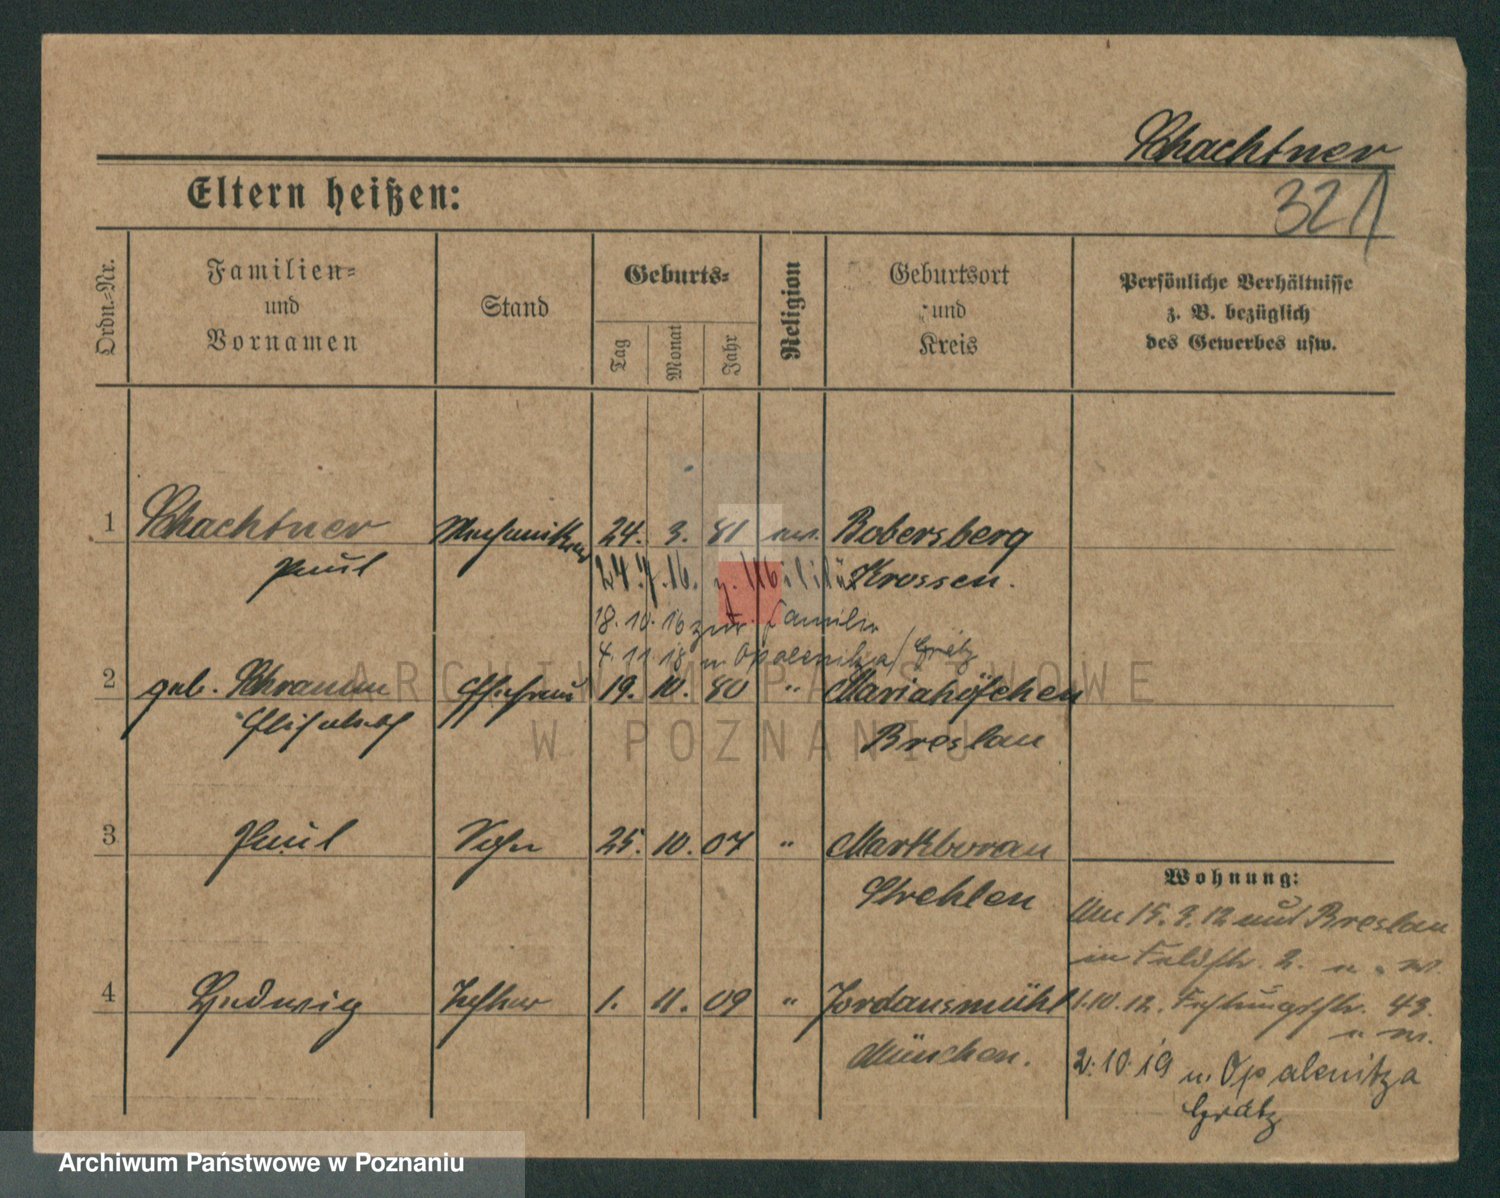 Schachtner
Eltern heißen:
321
Ordn.=Nr.
Familien=
und
Vornamen
Stand
Geburts=
Tag
Monat
Jahr
Religion
Geburtsort
und
Kreis
Persönliche Verhältnisse
z. B. bezüglich
des Gewerbes usw.
1 Schachtner Mechaniker 24. 3. 81 ev. Bobersberg
Paul Krossen.
24.7.16. z. Militär
18.10.16 zur Familie
4.11.18 n. Opalenitza/Grätz
2 geb. Schramm Ehefrau 19. 10. 80 " Mariahöfchen
Elisabeth Breslau
3 Paul Sohn 25. 10. 07 " Markborau
Strehlen
4 Ludwig Tochter 1. 11. 09 " Jordansmühl
München.
Wohnung:
Am 15.3.12 aus Breslau
in Feldstr. 2.
1.10.12. 43.
2.10.19 n. Opalenitza
Grätz
ARCHIWUM PAŃSTWOWE
W POZNANIU
Archiwum Państwowe w Poznaniu